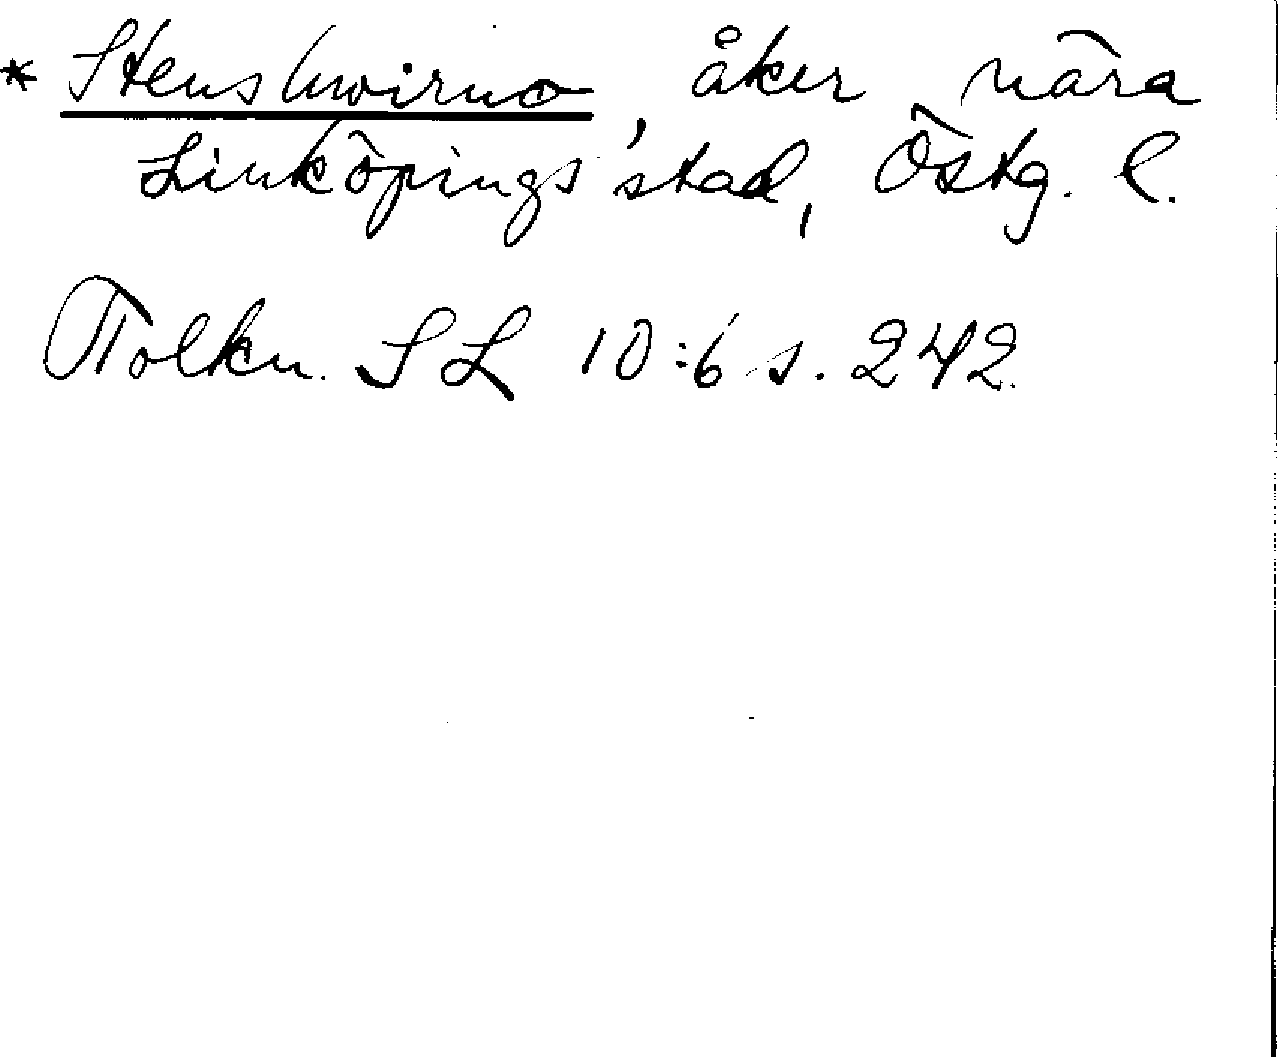 * Stenshwirno åker nära
Linköpings stad, Östg. l.
Tolkn. SL 10:6 s. 242.